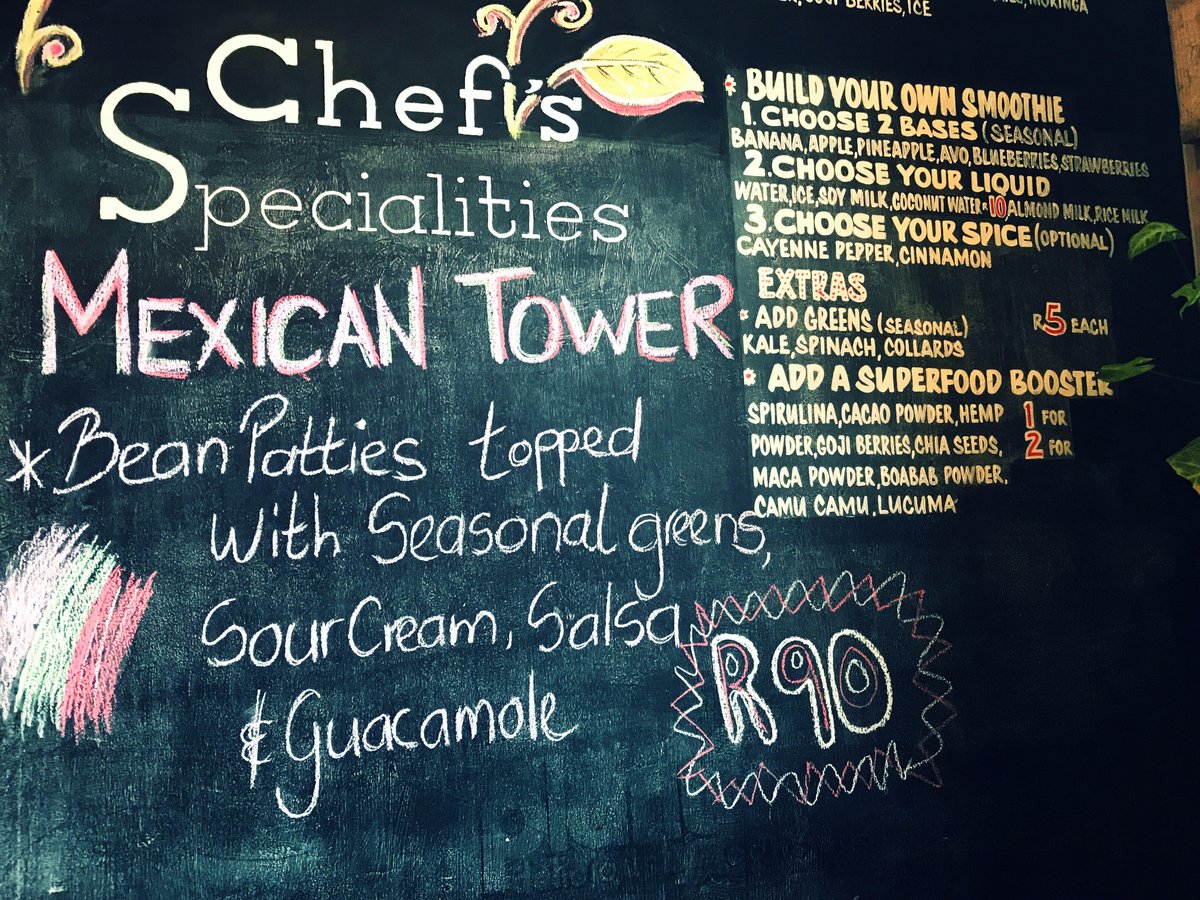 Chef's
Specialities
MEXICAN TOWER
*Bean Patties topped
with Seasonal greens,
Sour Cream, Salsa
& Guacamole
R90
BERRIES, ICE
MORINGA
* BUILD YOUR OWN SMOOTHIE
1. CHOOSE 2 BASES (SEASONAL)
BANANA, APPLE, PINEAPPLE, AVO, BLUEBERRIES, STRAWBERRIES
2. CHOOSE YOUR LIQUID
WATER, ICE, SOY MILK, COCONUT WATER+10 ALMOND MILK, RICE MILK
3. CHOOSE YOUR SPICE (OPTIONAL)
CAYENNE PEPPER, CINNAMON
EXTRAS
* ADD GREENS (SEASONAL) R5 EACH
KALE, SPINACH, COLLARDS
* ADD A SUPERFOOD BOOSTER
SPIRULINA, CACAO POWDER, HEMP 1 FOR
POWDER, GOJI BERRIES, CHIA SEEDS, 2 FOR
MACA POWDER, BOABAB POWDER.
CAMU CAMU, LUCUMA